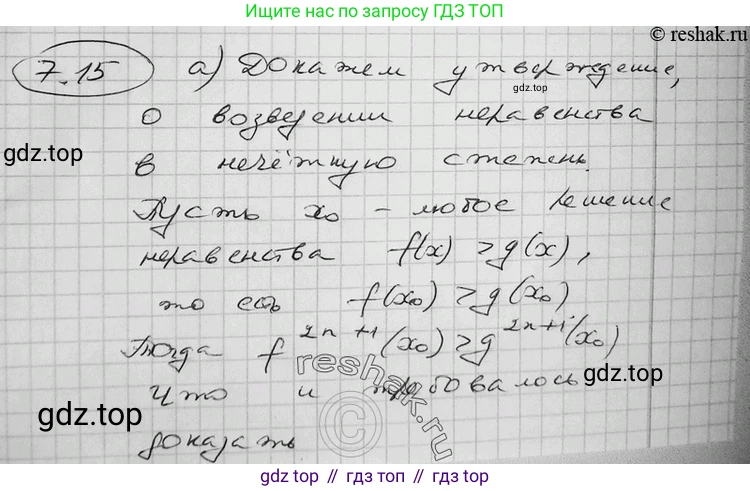 Ищите нас по запросу ГДЗ ТОП
© reshak.ru
7.15 а) Докажем утверждение,
gdz.top
о возведении неравенства
gdz.top
в нечётную степень.
Пусть x₀ - любое решение
неравенства f(x) > g(x),
то есть f(x₀) > g(x₀)
Тогда f²ⁿ⁺¹(x₀) > g²ⁿ⁺¹(x₀)
Что и требовалось
gdz.top
gdz.top
доказать
reshak.ru
©
gdz.top // гдз топ // gdz.top